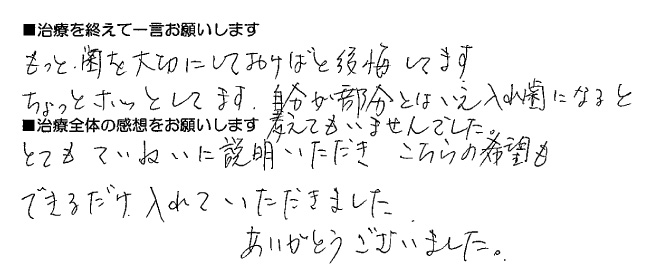 ■治療を終えて一言お願いします
もっと歯を大切にしておけばと後悔してます
ちょっとホッとしてます、自分が部分とはいえ入れ歯になると
考えてもいませんでした。
■治療全体の感想をお願いします
とても ていねいに説明いただき こちらの希望も
できるだけ 入れて いただきました
ありがとうございました。